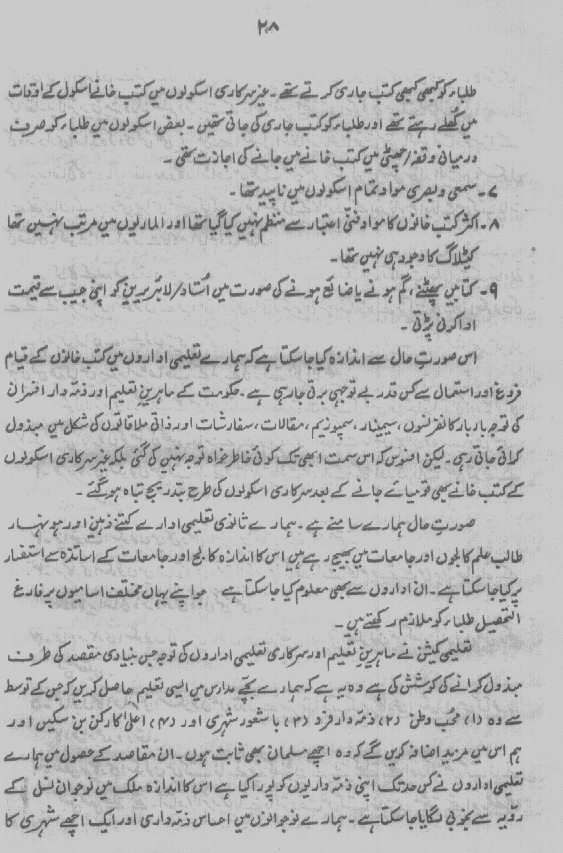 ۲۸
طلباء کو کبھی کبھی کتب جاری کرتے تھے۔ غیر سرکاری اسکولوں میں کتب خانے اسکول کے اوقات
میں کُھلے رہتے تھے اور طلباء کو کتب جاری کی جاتی تھیں۔ بعض اسکولوں میں طلباء کو صرف
درمیانی وقفہ/چھٹی میں کتب خانے میں جانے کی اجازت تھی۔
۷۔ سمعی و بصری مواد تمام اسکولوں میں ناپید تھا۔
۸۔ اکثر کتب خانوں کا مواد فنّی اعتبار سے منظم نہیں کیا گیا تھا اور الماریوں میں مرتب نہیں تھا
کیٹلاگ کا وجود ہی نہیں تھا۔
۹۔ کتابیں پھٹنے، گم ہونے یا ضائع ہونے کی صورت میں اُستاد/لائبریرین کو اپنی جیب سے قیمت
ادا کرنی پڑتی۔
اس صورتِ حال سے اندازہ کیا جا سکتا ہے کہ ہمارے تعلیمی اداروں میں کتب خانوں کے قیام
فروغ اور استعمال سے کس قدر بے توجہی برتی جا رہی ہے۔ حکومت کے ماہرینِ تعلیم اور ذمّہ دار افسران
کی توجہ بار بار کانفرنسوں، سیمینار، سمپوزیم، مقالات، سفارشات اور ذاتی ملاقاتوں کی شکل میں مبذول
کرائی جاتی رہی۔ لیکن افسوس کہ اس سمت ابھی تک کوئی خاطر خواہ توجہ نہیں کی گئی بلکہ غیر سرکاری اسکولوں
کے کتب خانے بھی قومیائے جانے کے بعد سرکاری اسکولوں کی طرح بتدریج تباہ ہو گئے۔
صورتِ حال ہمارے سامنے ہے۔ ہمارے ثانوی تعلیمی ادارے کتنے ذہین اور ہونہار
طالب علم کالجوں اور جامعات میں بھیج رہے ہیں اس کا اندازہ کالج اور جامعات کے اساتذہ سے استفسار
پر کیا جا سکتا ہے۔ ان اداروں سے بھی معلوم کیا جا سکتا ہے جو اپنے یہاں مختلف اسامیوں پر فارغ
التحصیل طلباء کو ملازم رکھتے ہیں۔
تعلیمی کمیشن نے ماہرینِ تعلیم اور سرکاری تعلیمی اداروں کی توجہ جس بنیادی مقصد کی طرف
مبذول کرانے کی کوشش کی ہے وہ یہ ہے کہ ہمارے بچّے مدارس میں ایسی تعلیم حاصل کریں کہ جس کے توسط
سے وہ (۱) محبِ وطن (۲) ذمّہ دار فرد (۳) باشعور شہری اور (۴) اعلیٰ کارکن بن سکیں اور
ہم اس میں مزید اضافہ کریں گے کہ وہ اچھے مسلمان بھی ثابت ہوں۔ ان مقاصد کے حصول میں ہمارے
تعلیمی اداروں نے کس حد تک اپنی ذمّہ داریوں کو پورا کیا ہے اس کا اندازہ ملک میں نوجوان نسل کے
رویہ سے بخوبی لگایا جا سکتا ہے۔ ہمارے نوجوانوں میں احساس ذمّہ داری اور ایک اچھے شہری کا